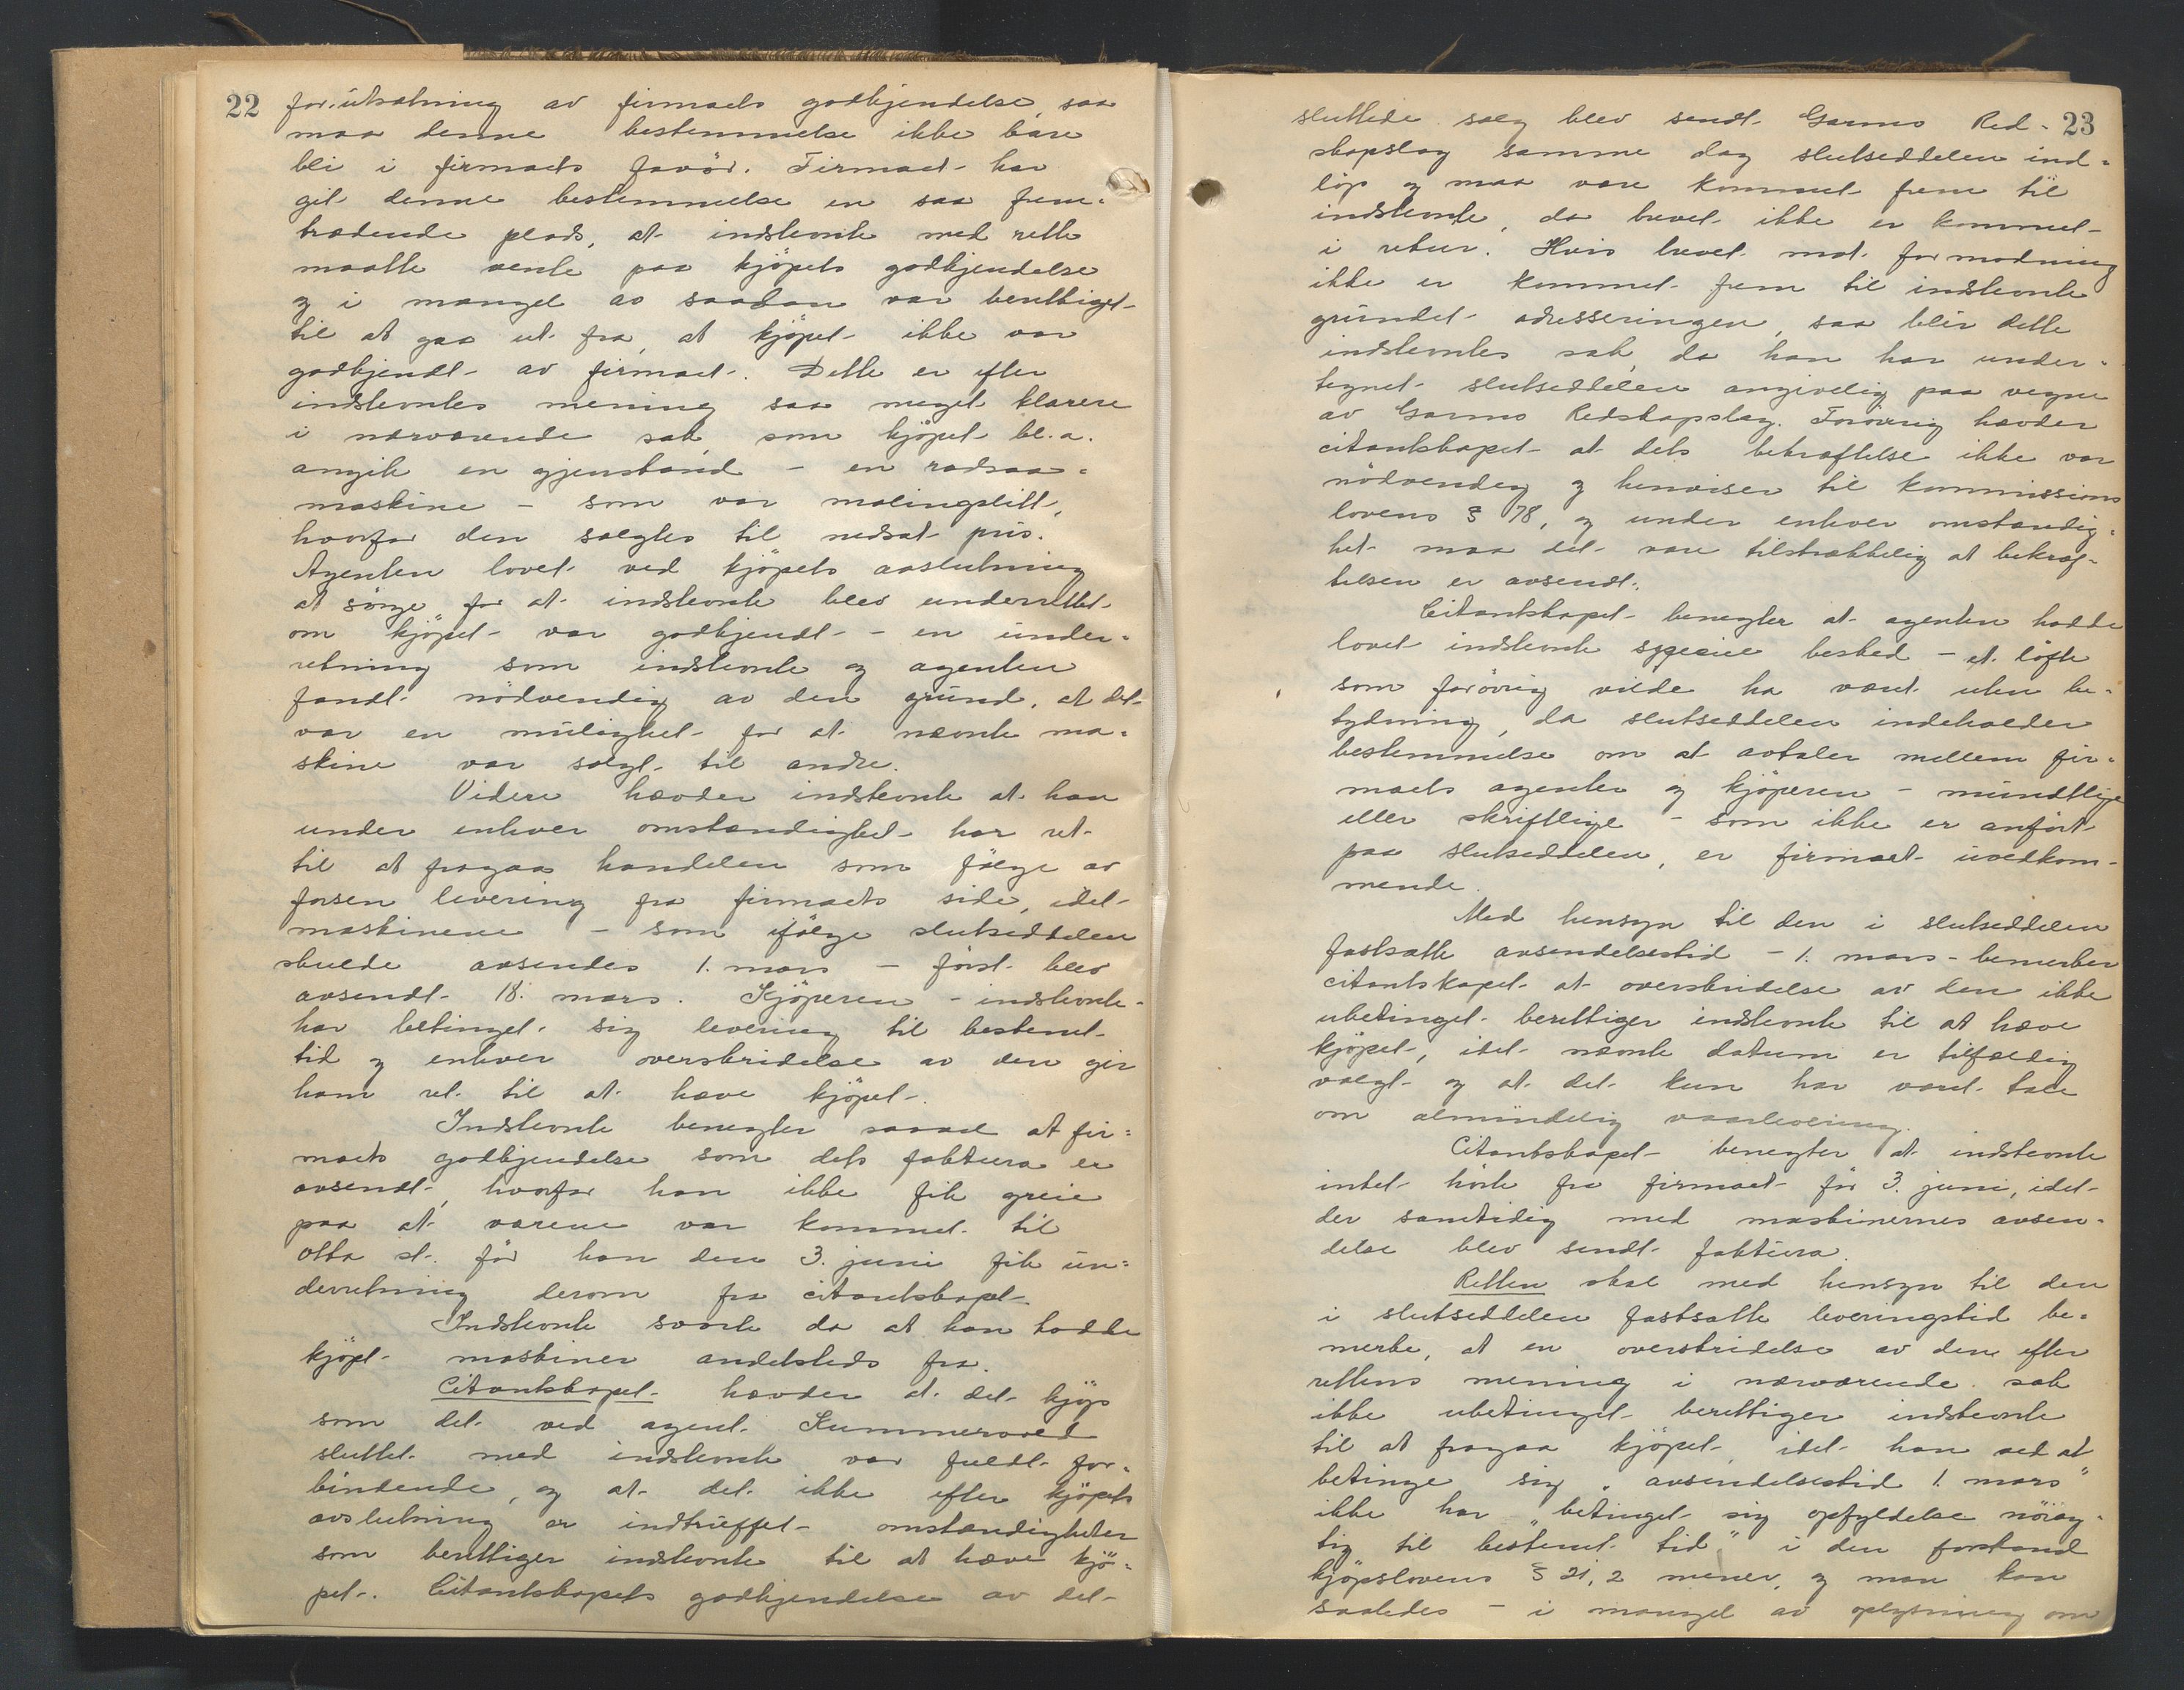 22
forutsætning av firmaets godkjendelse, saa
maa denne bestemmelse ikke bare
bli i firmaets favör. Firmaet har
git denne bestemmelse en saa frem-
trædende plads, at indstevnte med rette
maatte vente paa kjöpets godkjendelse
og i mangel av saadan var berettiget
til at gaa ut fra, at kjöpet ikke var
godkjendt av firmaet. Dette er efter
indstevntes mening saa meget klarere
i nærværende sak, som kjöpet bl.a.
angik en gjenstand - en radsaa-
maskine - som var malingslitt,
hvorfor den solgtes til nedsat pris.
Agenten lovet ved kjöpets avslutning
at sörge for at indstevnte blev underrettet
om kjöpet var godkjendt - en under-
retning som indstevnte og agenten
fandt nödvendig av den grund, at det
var en mulighet for at nævnte ma-
skine var solgt til andre.
Videre hævder indstevnte at han
under enhver omstændighet har ret
til at fragaa handelen som fölge av
forsen levering fra firmaets side, idet
maskinene - som ifölge slutseddelen
skulde avsendes 1. mars - först blev
avsendt 18. mars. Kjöperen - indstevnte -
har betinget sig levering til bestemt
tid og enhver overskridelse av den gir
ham ret til at hæve kjöpet.
Indstevnte benegter saavel at fir-
maets godkjendelse som dets faktura er
avsendt, hvorfor han ikke fik greie
paa at varene var kommet til
Otta st. för han den 3. juni fik un-
derretning derom fra citantskapet.
Indstevnte svarte da at han hadde
kjöpt maskiner andetsteds fra.
Citantskapet hævder at det kjöp
som det ved agent Kummerved
sluttet med indstevnte var fuldt for-
bindende, og at det ikke efter kjöpets
avslutning er indtruffet omstændigheter
som berettiger indstevnte til at hæve kjö-
pet. Citantskapets godkjendelse av det
23
sluttede salg blev sendt Garmo Red-
skapslag samme dag slutseddelen ind-
löp og maa være kommet frem til
indstevnte, da brevet ikke er kommet
i retur. Hvis brevet mot formodning
ikke er kommet frem til indstevnte
grundet adresseringen, saa blir dette
indstevntes sak, da han har under-
tegnet slutseddelen angivelig paa vegne
av Garmo Redskapslag. Forövrig hævder
citantskapet at dets bekræftelse ikke var
nödvendig og henviser til kommissions
lovens § 78, og under enhver omstændig-
het maa det være tilstrækkelig at bekræf-
telsen er avsendt.
Citantskapet benegter at agenten hadde
lovet indstevnte speciel besked - et löfte
som forövrig vilde ha været uten be-
tydning, da slutseddelen indeholder
bestemmelse om at avtaler mellem fir-
maets agenter og kjöperen - mundtlige
eller skriftlige - som ikke er anfört
paa slutseddelen, er firmaet uvedkom-
mende.
Med hensyn til den i slutseddelen
fastsatte avsendelsestid - 1. mars - bemerker
citantskapet at overskridelse av den ikke
ubetinget berettiger indstevnte til at hæve
kjöpet, idet nævnte datum er tilfældig
valgt og at det kun har været tale
om almindelig vaarlevering.
Citantskapet benegter at indstevnte
intet hörte fra firmaet för 3. juni, idet
der samtidig med maskinernes avsen-
delse blev sendt faktura.
Retten skal med hensyn til den
i slutseddelen fastsatte leveringstid be-
merke, at en overskridelse av den efter
rettens mening i nærværende sak
ikke ubetinget berettiger indstevnte
til at fragaa kjöpet, idet han ved at
betinge sig "avsendelsestid 1. mars"
ikke har "betinget sig opfyldelse nöiag-
tig til bestemt tid" i den forstand
kjöpslovens § 21, 2 mener, og man kan
saaledes - i mangel av oplysning om